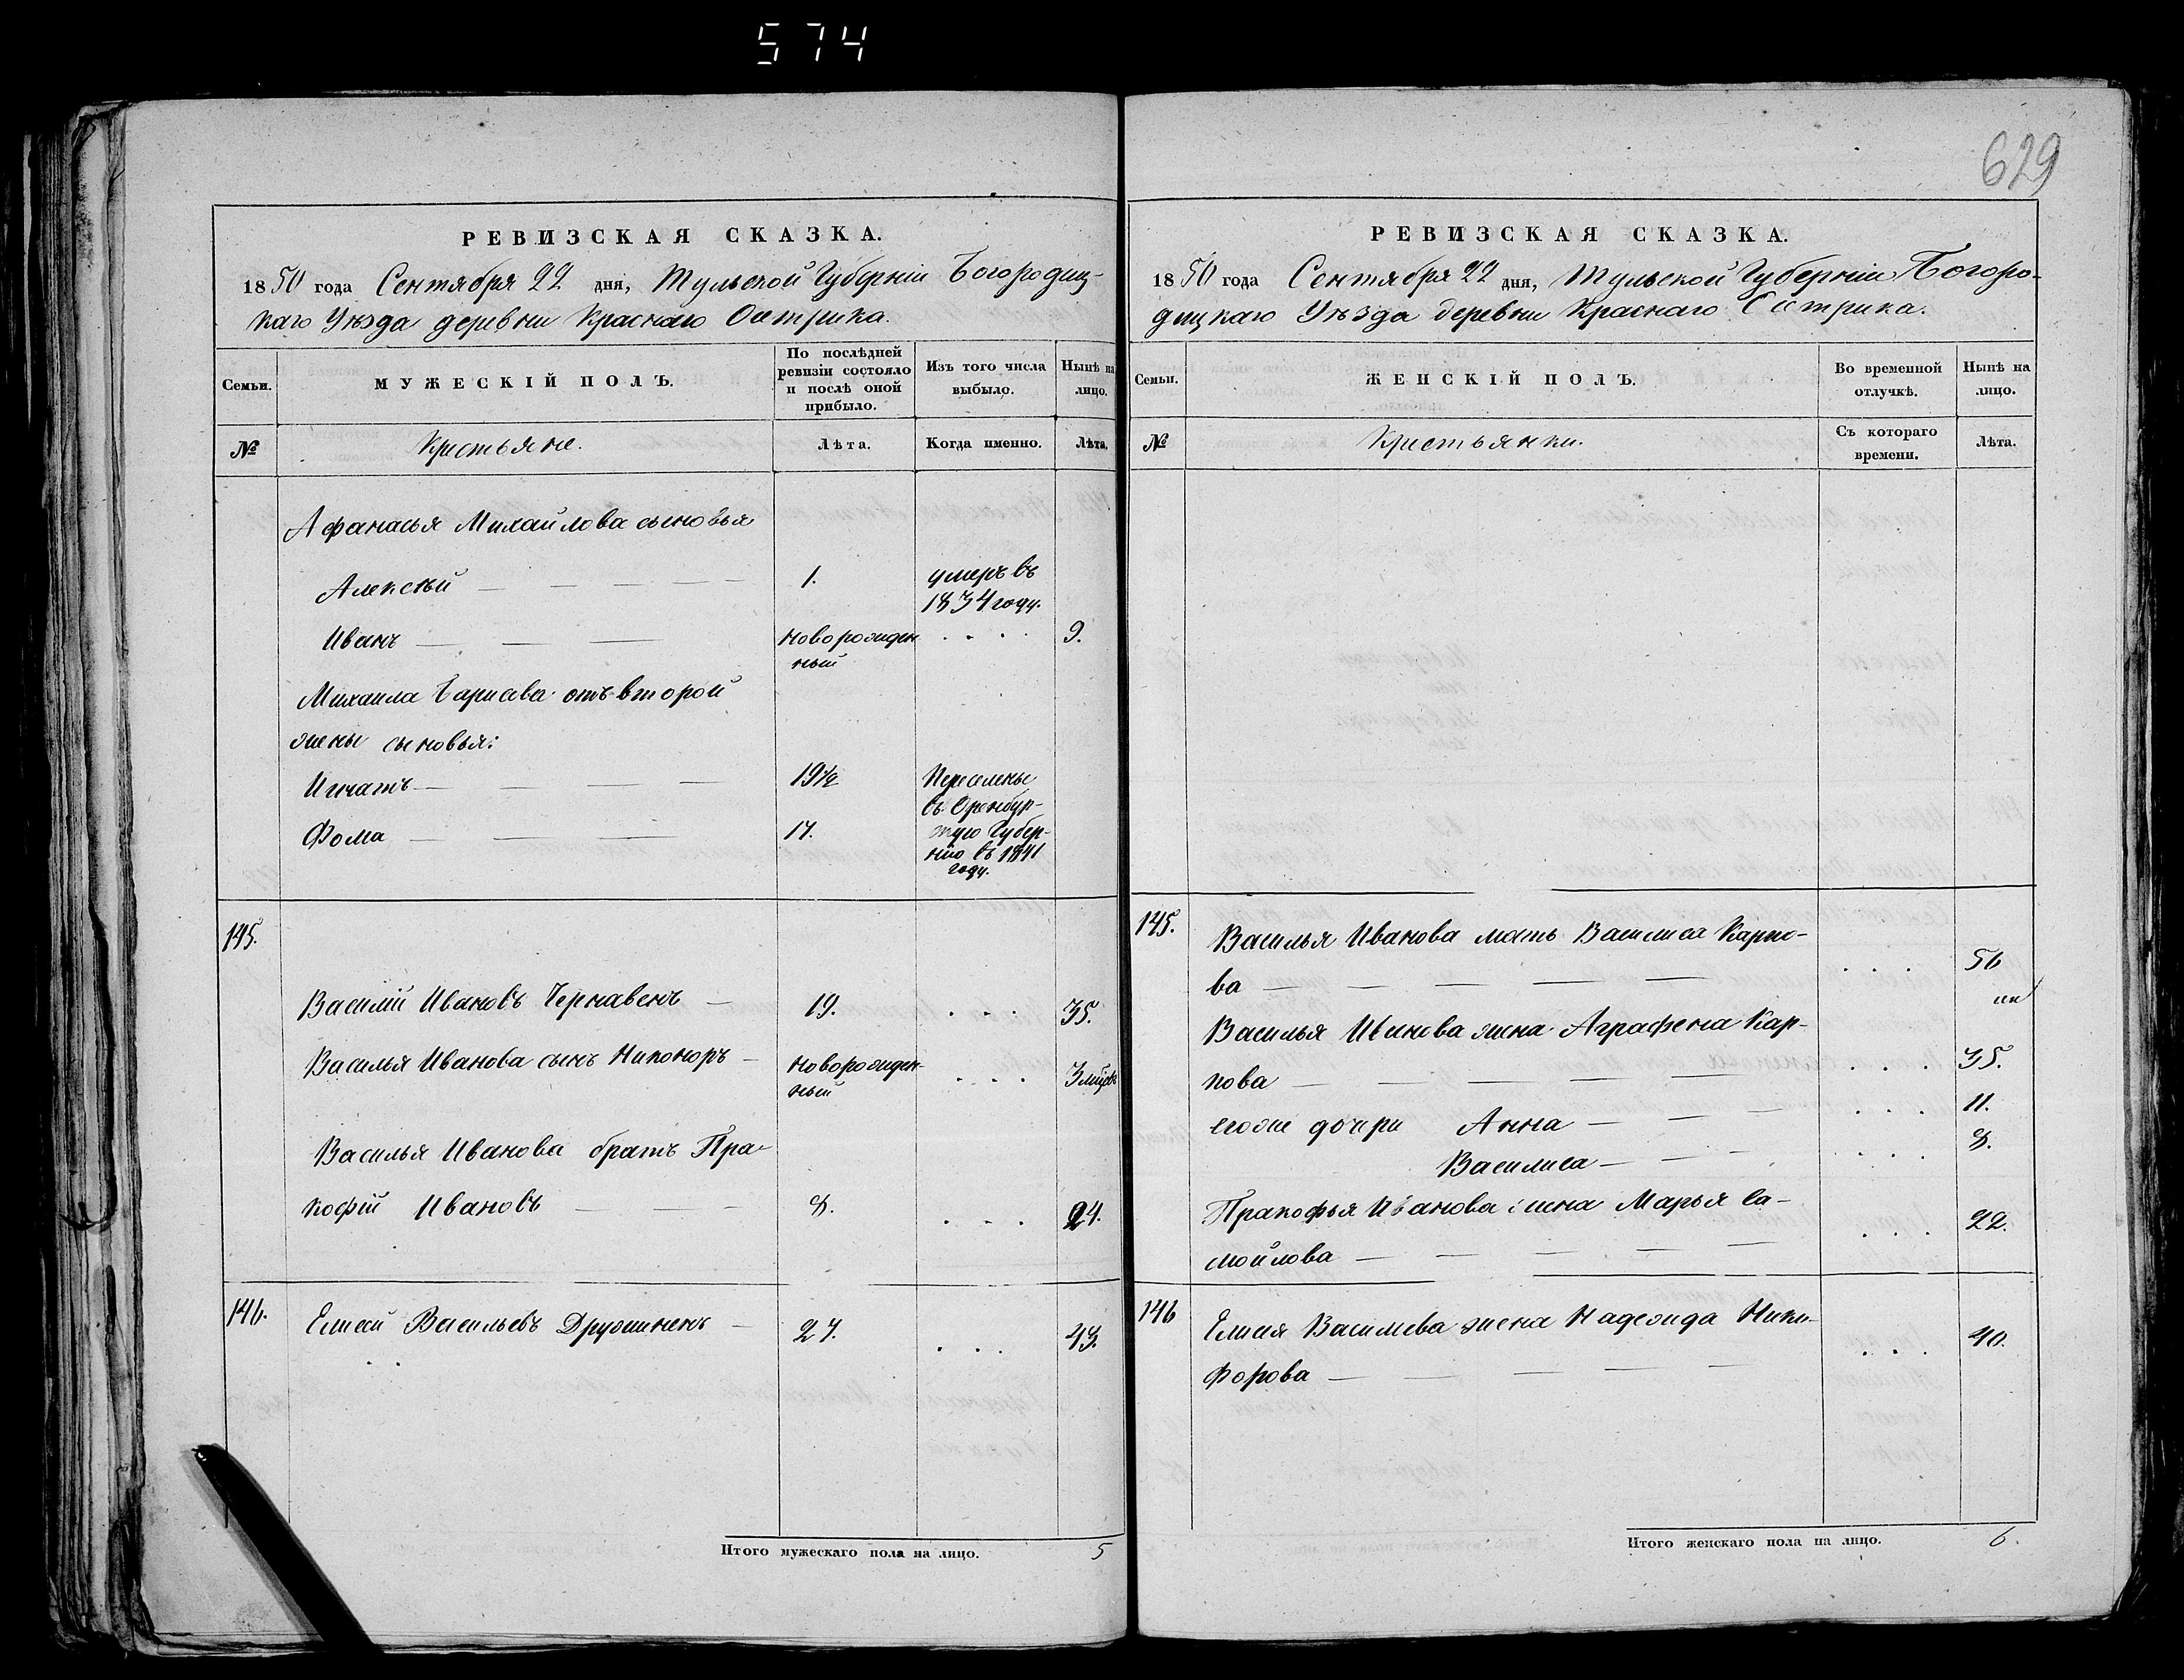 574
629
РЕВИЗСКАЯ СКАЗКА.
1850 года Сентября 22 дня, Тульской Губерніи Богородиц-
каго Уѣзда деревни Краснаго Остряка.
Семьи.
МУЖЕСКІЙ ПОЛЪ.
По послѣдней
ревизіи состояло
и послѣ оной
прибыло.
Изъ того числа
выбыло.
Нынѣ на
лицо.
№
Крестьяне.
Лѣта.
Когда именно.
Лѣта.
Афанасья Михайлова сыновья
Алексѣй
1.
умеръ въ
1834 году.
Иванъ
новорожден
ный
9.
Михаила Барисава отъ второй
жены сыновья:
Игнатъ
19½
Переселены
въ Оренбур-
гкую Губер-
нію въ 1841
году.
Фома
17.
145.
Василій Ивановъ Чернавенъ
19.
35.
Василья Иванова сынъ Никоноръ
новорожден-
ный
3 мѣсяц
Василья Иванова братъ Пра-
кофій Ивановъ
8.
24.
146.
Елисей Васильевъ Дружиненъ
27.
43.
Итого мужескаго пола на лицо.
5
РЕВИЗСКАЯ СКАЗКА.
1850 года Сентября 22 дня, Тульской Губерніи Богоро-
дицкаго Уѣзда деревни Краснаго Остряка.
Семьи.
ЖЕНСКІЙ ПОЛЪ.
Во временной
отлучкѣ.
Нынѣ на
лицо.
№
Крестьянки.
Съ котораго
времени.
Лѣта.
145.
Василья Иванова мать Василиса Карпо-
ва
56
Василья Иванова жена Аграфена Кар-
пова
35.
егоже дочери Анна
11.
Василиса
8.
Пракофья Иванова жена Марья Са-
мойлова
22.
146
Елисея Василиева жена Надежда Ники-
форова
40.
Итого женскаго пола на лицо.
6.